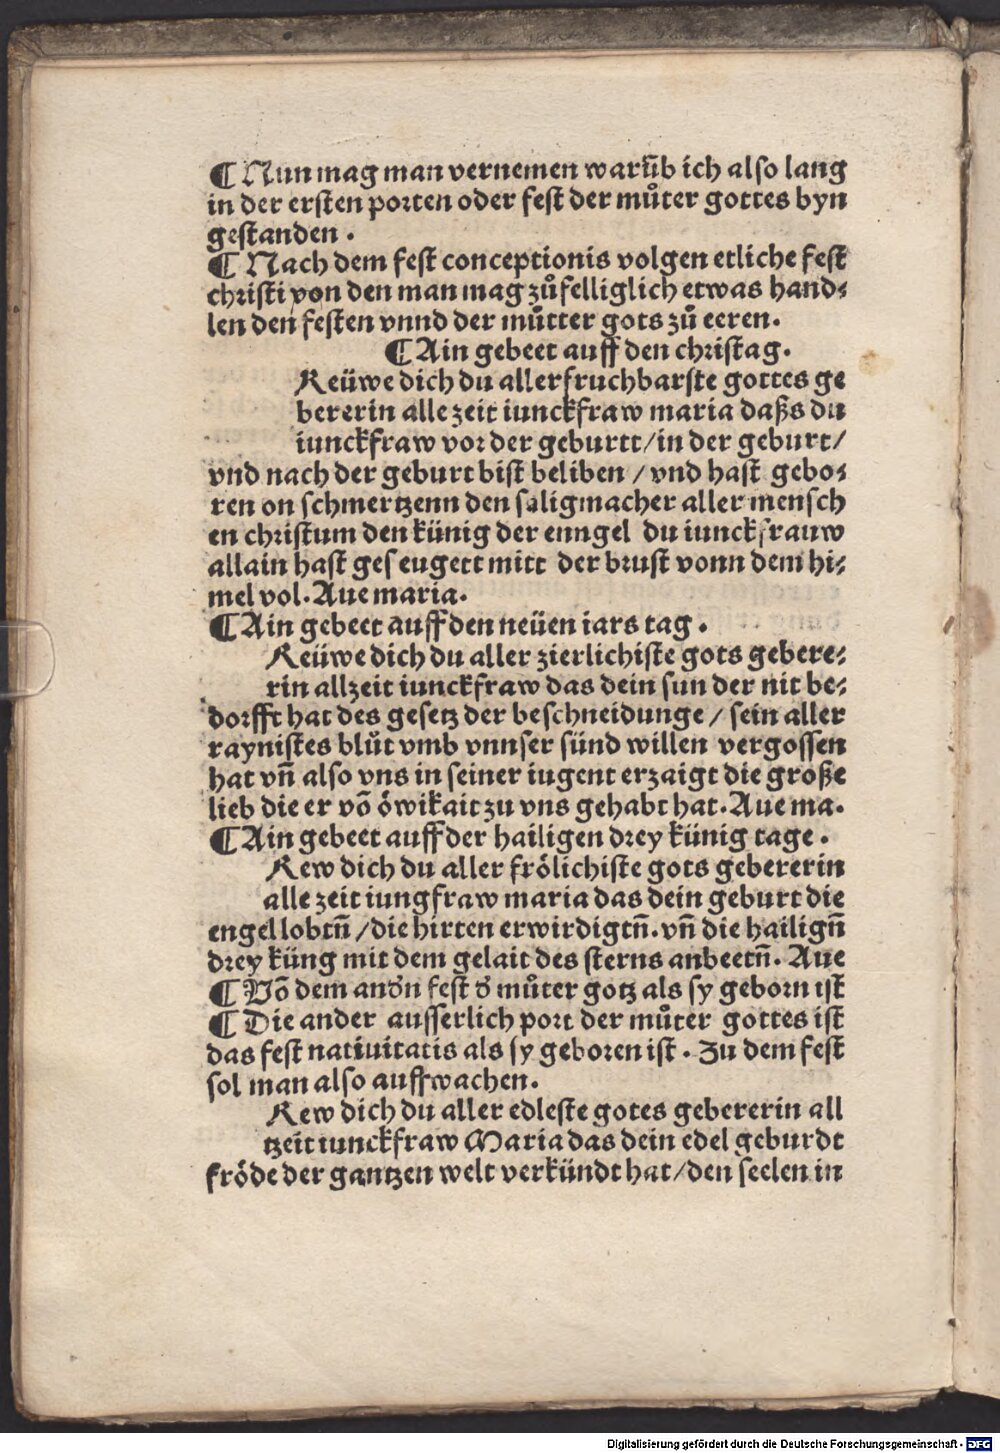 ¶ Nun mag man vernemen warūb ich also lang
in der ersten porten oder fest der můter gottes byn
gestanden .
¶ Nach dem fest conceptionis volgen etliche fest
christi von den man mag zůfelliglich etwas hand⸗
len den festen vnnd der můtter gots zů eeren.
¶ Ain gebeet auff den christag.
Reüwe dich du allerfruchbarste gottes ge
bererin alle zeit iunckfraw maria daßs du
iunckfraw vor der geburtt/in der geburt/
vnd nach der geburt bist beliben / vnd hast gebo⸗
ren on schmertzenn den saligmacher aller mensch
en christum den künig der enngel du iunckfrauw
allain hast geseugett mitt der brust vonn dem hi⸗
mel vol. Aue maria.
¶ Ain gebeet auff den neüen iars tag .
Reüwe dich du aller zierlichiste gots gebere⸗
rin allzeit iunckfraw das dein sun der nit be⸗
dorfft hat des gesetz der beschneidunge / sein aller
raynistes blůt vmb vnnser sünd willen vergossen
hat vñ also vns in seiner iugent erzaigt die große
lieb die er võ öwikait zu vns gehabt hat. Aue ma.
¶ Ain gebeet auff der hailigen drey künig tage .
Rew dich du aller frölichiste gots gebererin
alle zeit iungfraw maria das dein geburt die
engel lobtñ /die hirten erwirdigtñ. vñ die hailigñ
drey küng mit dem gelait des sterns anbeetñ. Aue
¶ Võ dem andn̄ fest d̄ můter gotz als sy geborn ist
¶ Die ander ausserlich port der můter gottes ist
das fest natiuitatis als sy geboren ist . Zu dem fest
sol man also auffwachen.
Rew dich du aller edleste gotes gebererin all
tzeit iunckfraw Maria das dein edel geburdt
fröde der gantzen welt verkündt hat/den seelen in
Digitalisierung gefördert durch die Deutsche Forschungsgemeinschaft - DFG